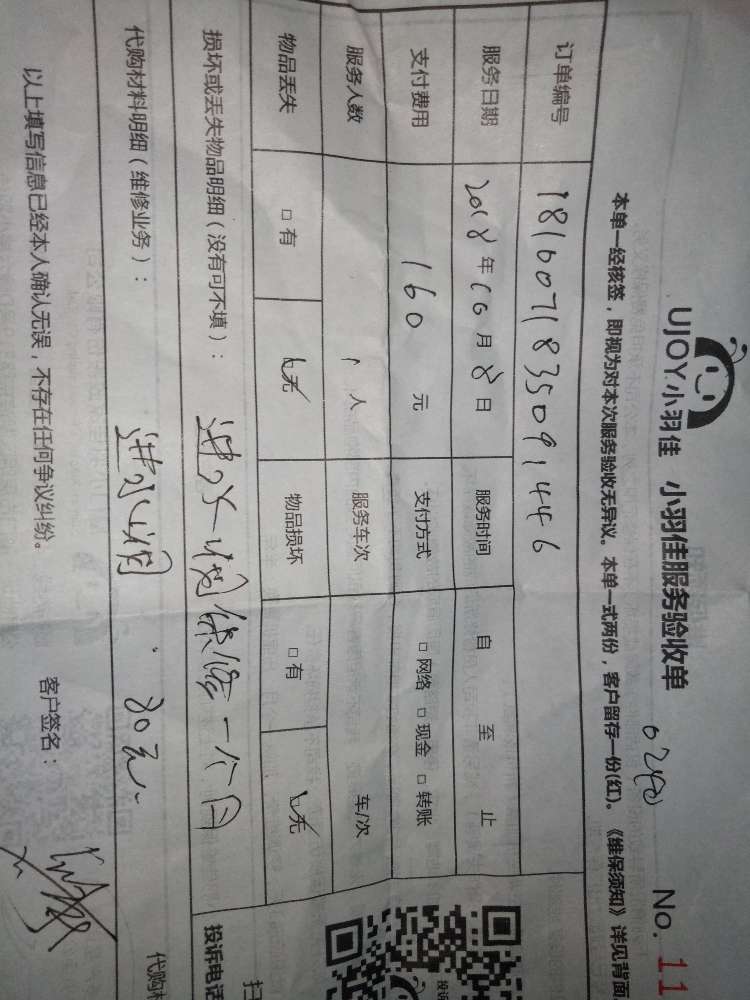 UJOY小羽佳 小羽佳服务验收单
No. 11
本单一经核签，即视为对本次服务验收无异议。本单一式两份，客户留存一份(红)。《维保须知》详见背面
订单编号 1816071835091446
服务日期 2018年10月8日 服务时间 自 至 止
支付费用 160 元 支付方式 □ 网络 □ 现金 □ 转账
服务人数 1 人 服务车次 车/次
物品丢失 □ 有 ☑无 物品损坏 □ 有 ☑无
损坏或丢失物品明细（没有可不填）： 进水阀保修一个月
投诉电话
代购材料明细（维修业务）： 进水阀 80元
代购材
以上填写信息已经本人确认无误，不存在任何争议纠纷。 客户签名：
扫
投诉